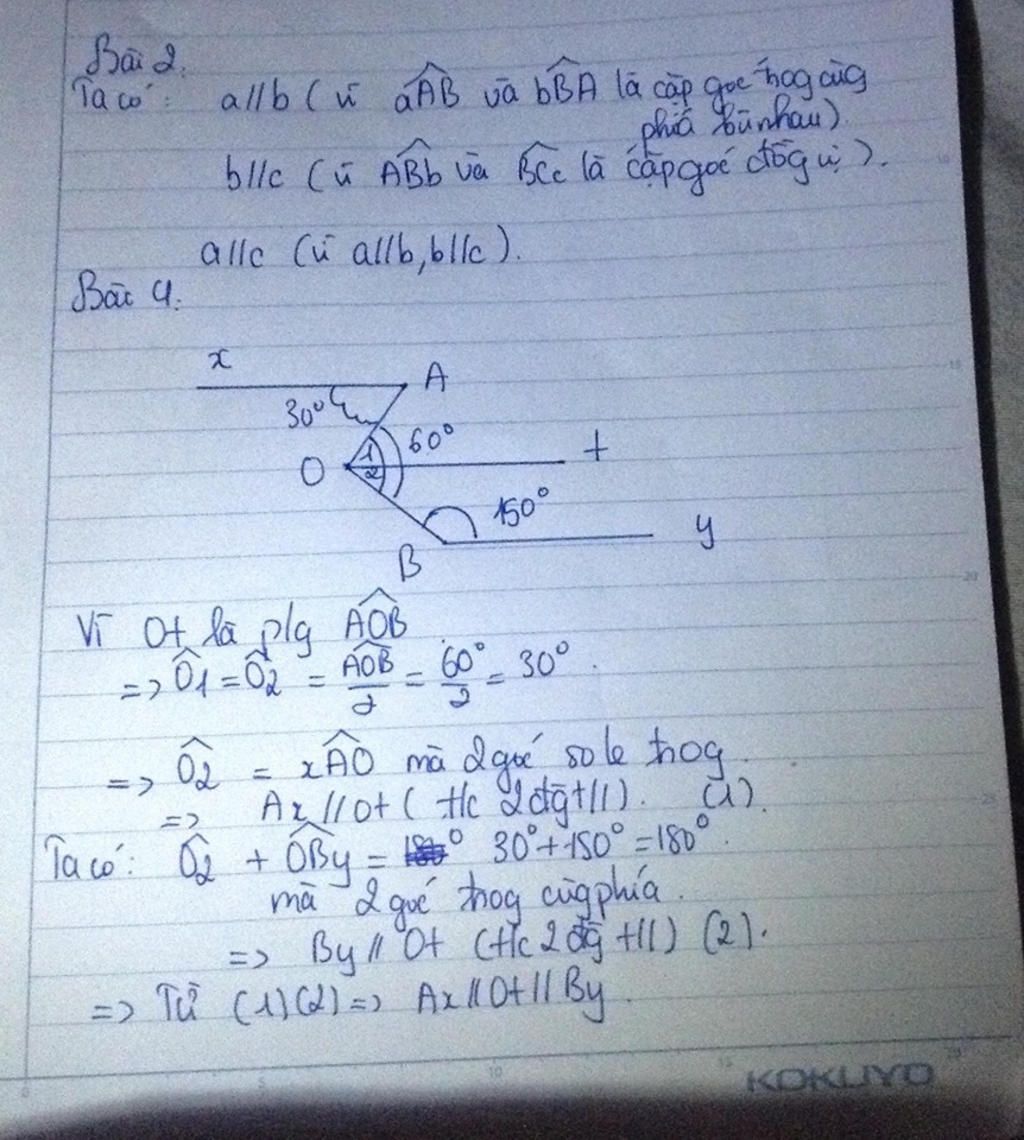 Bài 2.
Ta có: a//b (vì aÂB và bB̂A là cặp góc trog cùg
phía bù nhau).
b//c (vì AB̂b và BĈc là cặp góc đồg vị).
a//c (vì a//b, b//c).
Bài 4.
x
A
30°
60°
1
O
t
2
150°
y
B
Vì Ot là p/g AÔB
=> Ô1 = Ô2 = AÔB/2 = 60°/2 = 30°.
=> Ô2 = xÂO mà 2 góc so le trog.
=> Ax // Ot (t/c 2 đg t//). (1).
Ta có: Ô2 + OB̂y = 30° + 150° = 180°.
mà 2 góc trog cùg phía.
=> By // Ot (t/c 2 đg t//) (2).
=> Từ (1)(2) => Ax // Ot // By.
KOKUYO